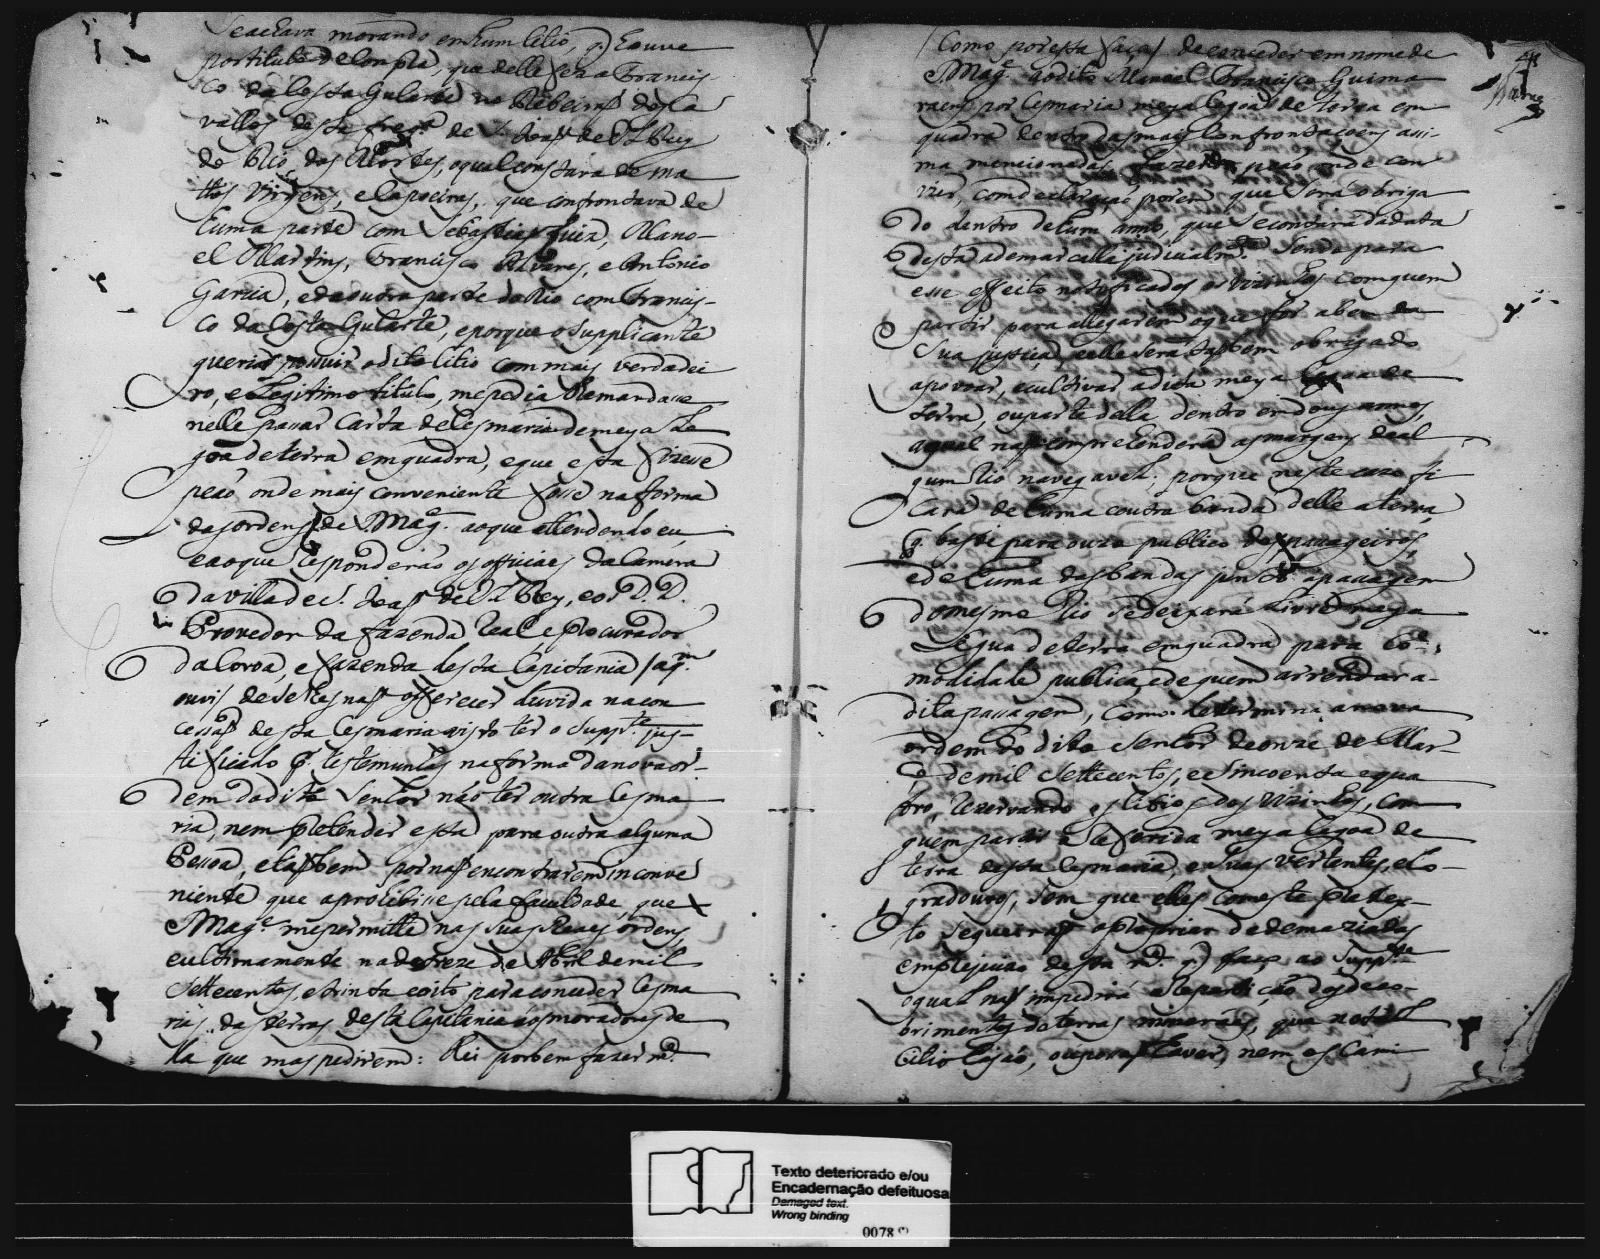 Seachava morando em hum citio, q. houve
por titulo de compra, que delle fez a Francis
co da Costa Gularte no Ribeirão dos Ca
vallos desta freg.ª de S. João de El Rey
do Rio das Mortes, o qual constara de ma
ttos Virgens, e Capoeiras, que confrontava de
huma parte com Sebastiam Luiz, Mano-
el Martins, Francisco Alvares, e Antonio
Garcia, e da outra parte do Rio com Francis-
co da Costa Gularte, e porque o supplicante
queria possuir o dito citio com mais verdadei
ro, e Legitimo titulo, me pedia lhe mandasse
nelle passar Carta de Cesmaria de meya Le
goa de terra em quadra, e que esta fizesse
peão onde mais conveniente fosse na forma
das ordens de S. Mag.e ao que attendendo eu,
e ao que responderão os officiaes da Camera
da villa de S. João de El Rey, e os D.D.
Provedor da fazenda Real e Procurador
da Coroa, e fazenda desta Capitania (aq.m
ouvi) de se lhes não offerecer duvida na con
cessão desta Cesmaria visto ter o Supp.te jus-
tificado p.r testemunhas na forma da nova or-
dem do dito Senhor não ter outra Cesma
ria, nem pretender esta para outra alguma
Pessoa, e tambem por não encontrarem inconve
niente que a prohibisse pela faculdade, que S.
Mag.e me permitte nas suas Reaes ordens,
e ultimamente na de treze de Abril de mil
Settecentos, e trinta e oito para conceder Cesma
rias das terras desta Capitania aos moradores de
lla que mas pedirem: Hei por bem fazer m.ce
(Como por esta faço) de conceder em nome de
S. Mag.e ao dito Manoel Francisco Guima
raens por Cesmaria meya Legoa de terra em
quadra dentro das mais Confrontaçoens assi-
ma mencionadas, fazendo peão onde con
vier, com declaração porem que será obriga
do dentro de hum anno, que se contará da data
desta a demarcalla judicialm.te sendo para
esse effeito notificados os vizinhos com quem
partir para allegarem o que for a bem da
Sua justiça, e elle será tambem obrigado
a povoar, e cultivar a dita meya Legoa de
terra, ou parte della dentro em dous annos,
a qual não comprehenderá as margens de al
gum Rio navegavel; porque neste caso fi
cará de huma e outra banda delle a terra,
q. baste para o uzo publico dos passageiros,
e de huma das bandas junto á passagem
do mesmo Rio se deixará Livre meya
Legua de terra em quadra para co-
modidade publica, e de quem arrendar a-
dita passagem, como determina a nova
ordem do dito Senhor de onze de Mar-
ço de mil Settecentos, e sincoenta e qua
tro, rezervando os sitios dos vizinhos, com
quem partir a referida meya Legoa de
terra desta Cesmaria, e suas vertentes, e lo-
gradouros, sem que elles com este pretex-
to se queirão apropriar de demaziadas
em prejuizo desta m.ce q. faço ao Supp.te
o qual não impedirá a Repartição dos desco-
brimentos de terras mineraes, que no tal
citio hajão, ou possão haver, nem os Cami
Texto deteriorado e/ou
Encadernação defeituosa
Damaged text.
Wrong binding
0078